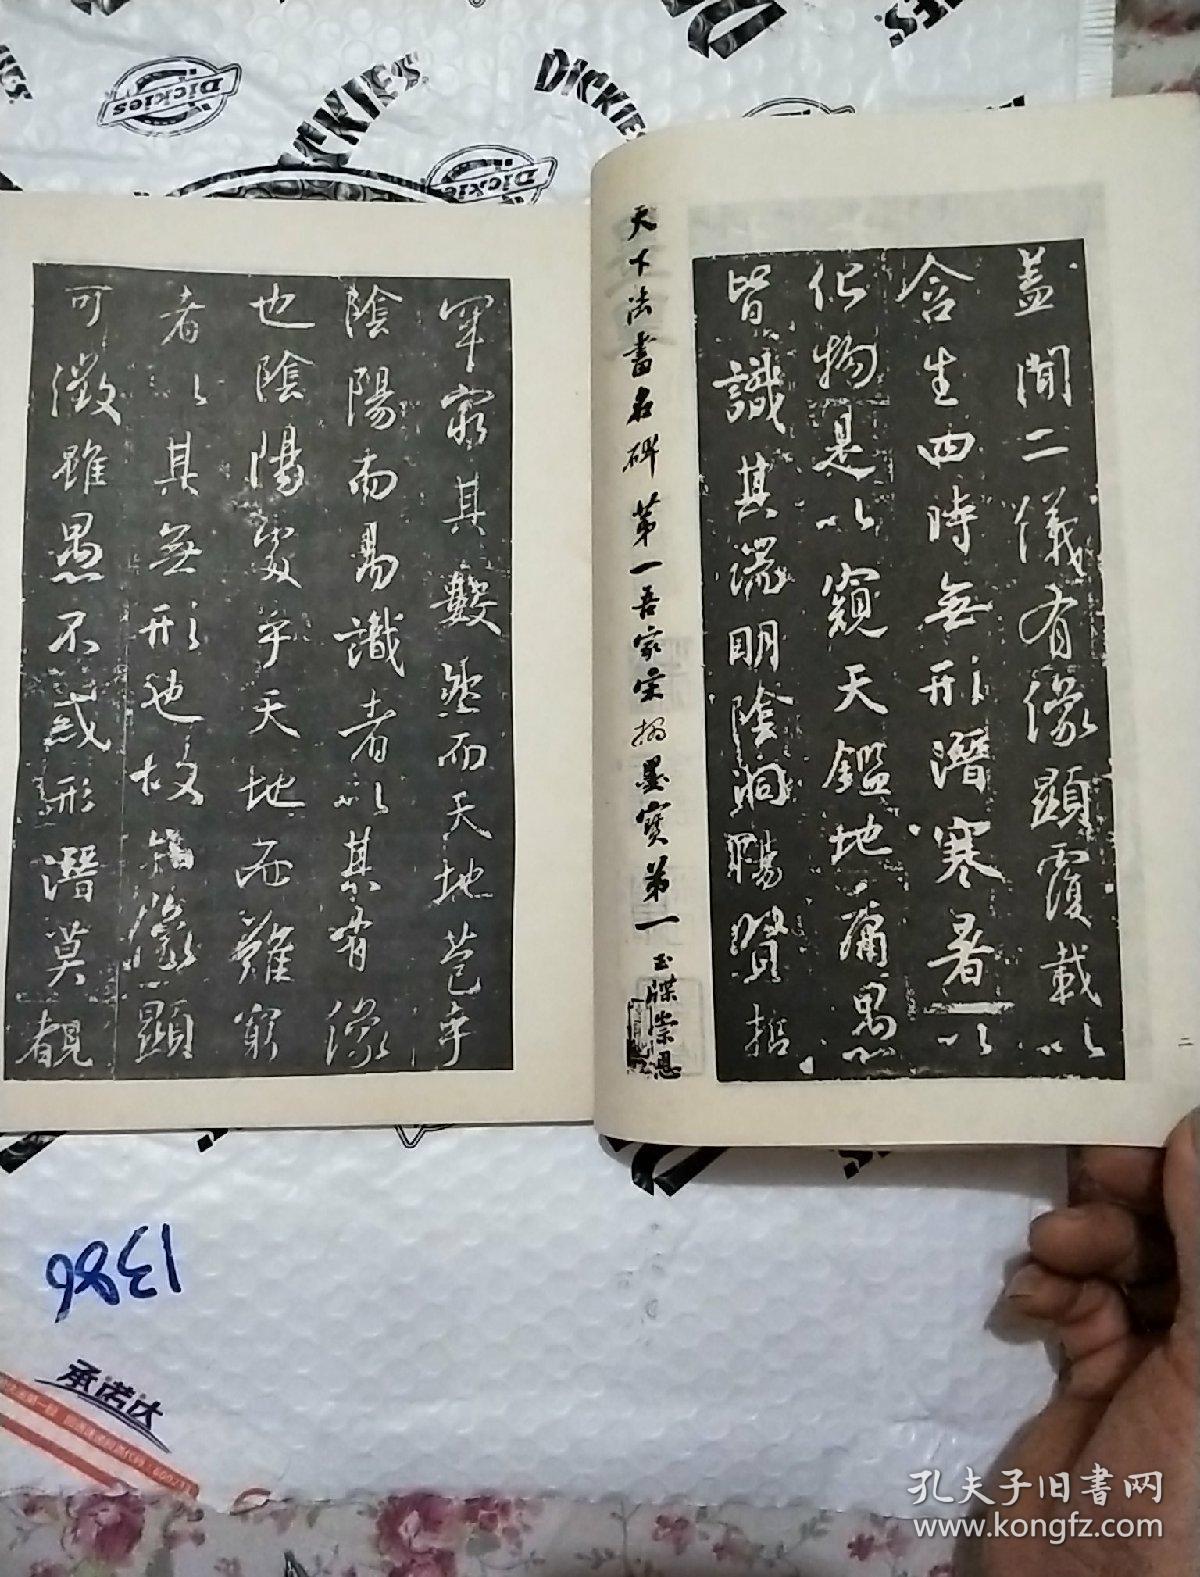 盖聞二儀有像顯覆載以
含生四時無形潛寒暑以
化物是以窺天鑑地庸愚
皆識其端明陰洞陽賢哲
天下法書名碑第一吾家宋搨墨寶第一玉牒崇恩
二
罕窮其數然而天地苞乎
陰陽而易識者以其有像
也陰陽處乎天地而難窮
者以其無形也故知像顯
可徵雖愚不惑形潛莫覩
DICKIES
Dickies
Dickies
1386
承诺达
孔夫子旧书网
www.kongfz.com